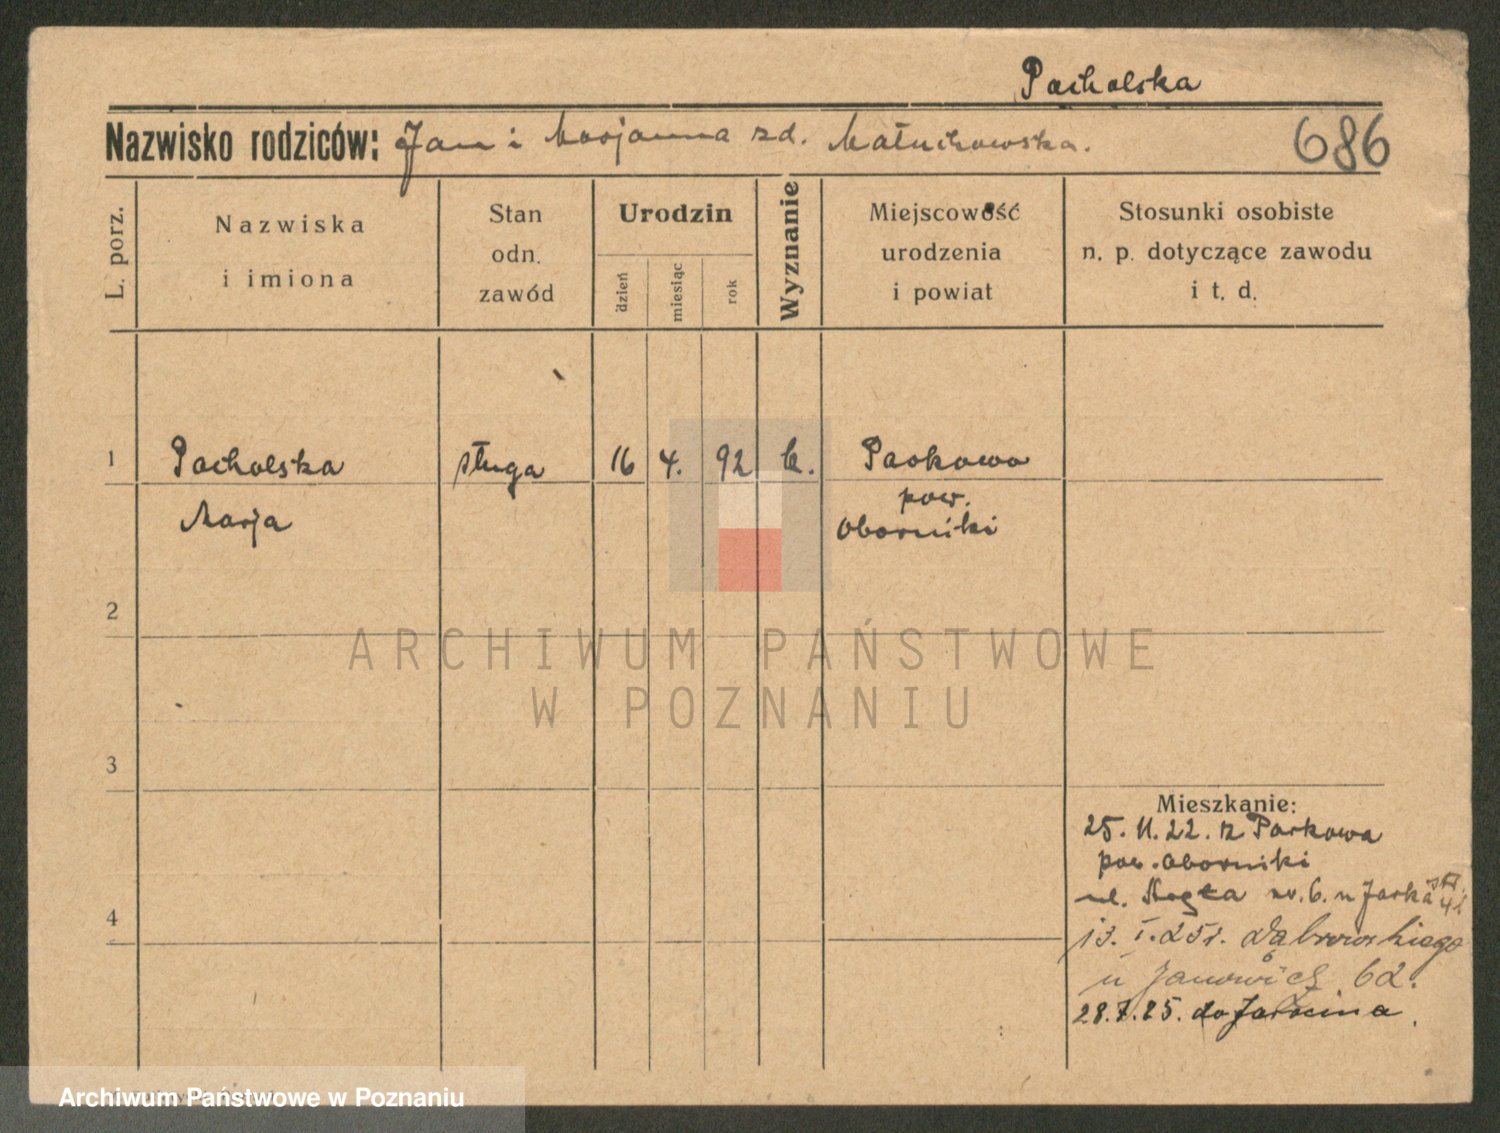 Pacholska
Nazwisko rodziców: Jan i Marjanna zd. Małuchowska.
686
L. porz.
Nazwiska
i imiona
Stan
odn.
zawód
Urodzin
dzień
miesiąc
rok
Wyznanie
Miejscowość
urodzenia
i powiat
Stosunki osobiste
n. p. dotyczące zawodu
i t. d.
1
Pacholska
Marja
sługa
16
4.
92
k.
Parkowo
pow.
Oborniki
2
3
4
Mieszkanie:
25. 11. 22. z Parkowa
pow. Oborniki
ul. nr. 6. u
13. I. 25 r. Dąbrowskiego
u 62.
28.7.25. do Jarocina.
ARCHIWUM PAŃSTWOWE
W POZNANIU
Archiwum Państwowe w Poznaniu